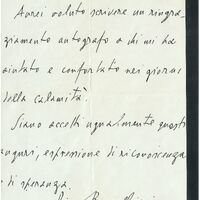 Avrei voluto scrivere un ringra-
ziamento autografo a chi mi ha
aiutato e confortato nei giorni
della calamità.
Siano accetti ugualmente questi
auguri, espressione di riconoscenza
e di speranza